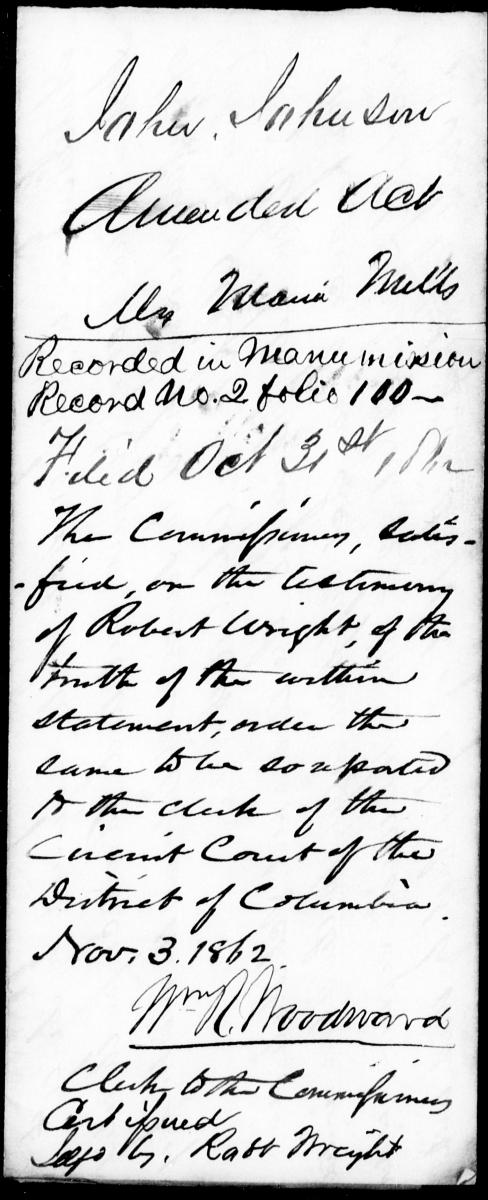 John Johnson
Amended Act
Mrs Maria Mills
Recorded in Manumission
Record No. 2 folio 100
Filed Oct 31st, 1862
The Commissioners, satis-
-fied, on the testimony
of Robert Wright, of the
truth of the within
statement, order the
same to be so reported
to the clerk of the
Circuit Court of the
District of Columbia.
Nov. 3. 1862
Wm R. Woodward
Clerk to the Commissioners
Cert issued
by. Robt Wright